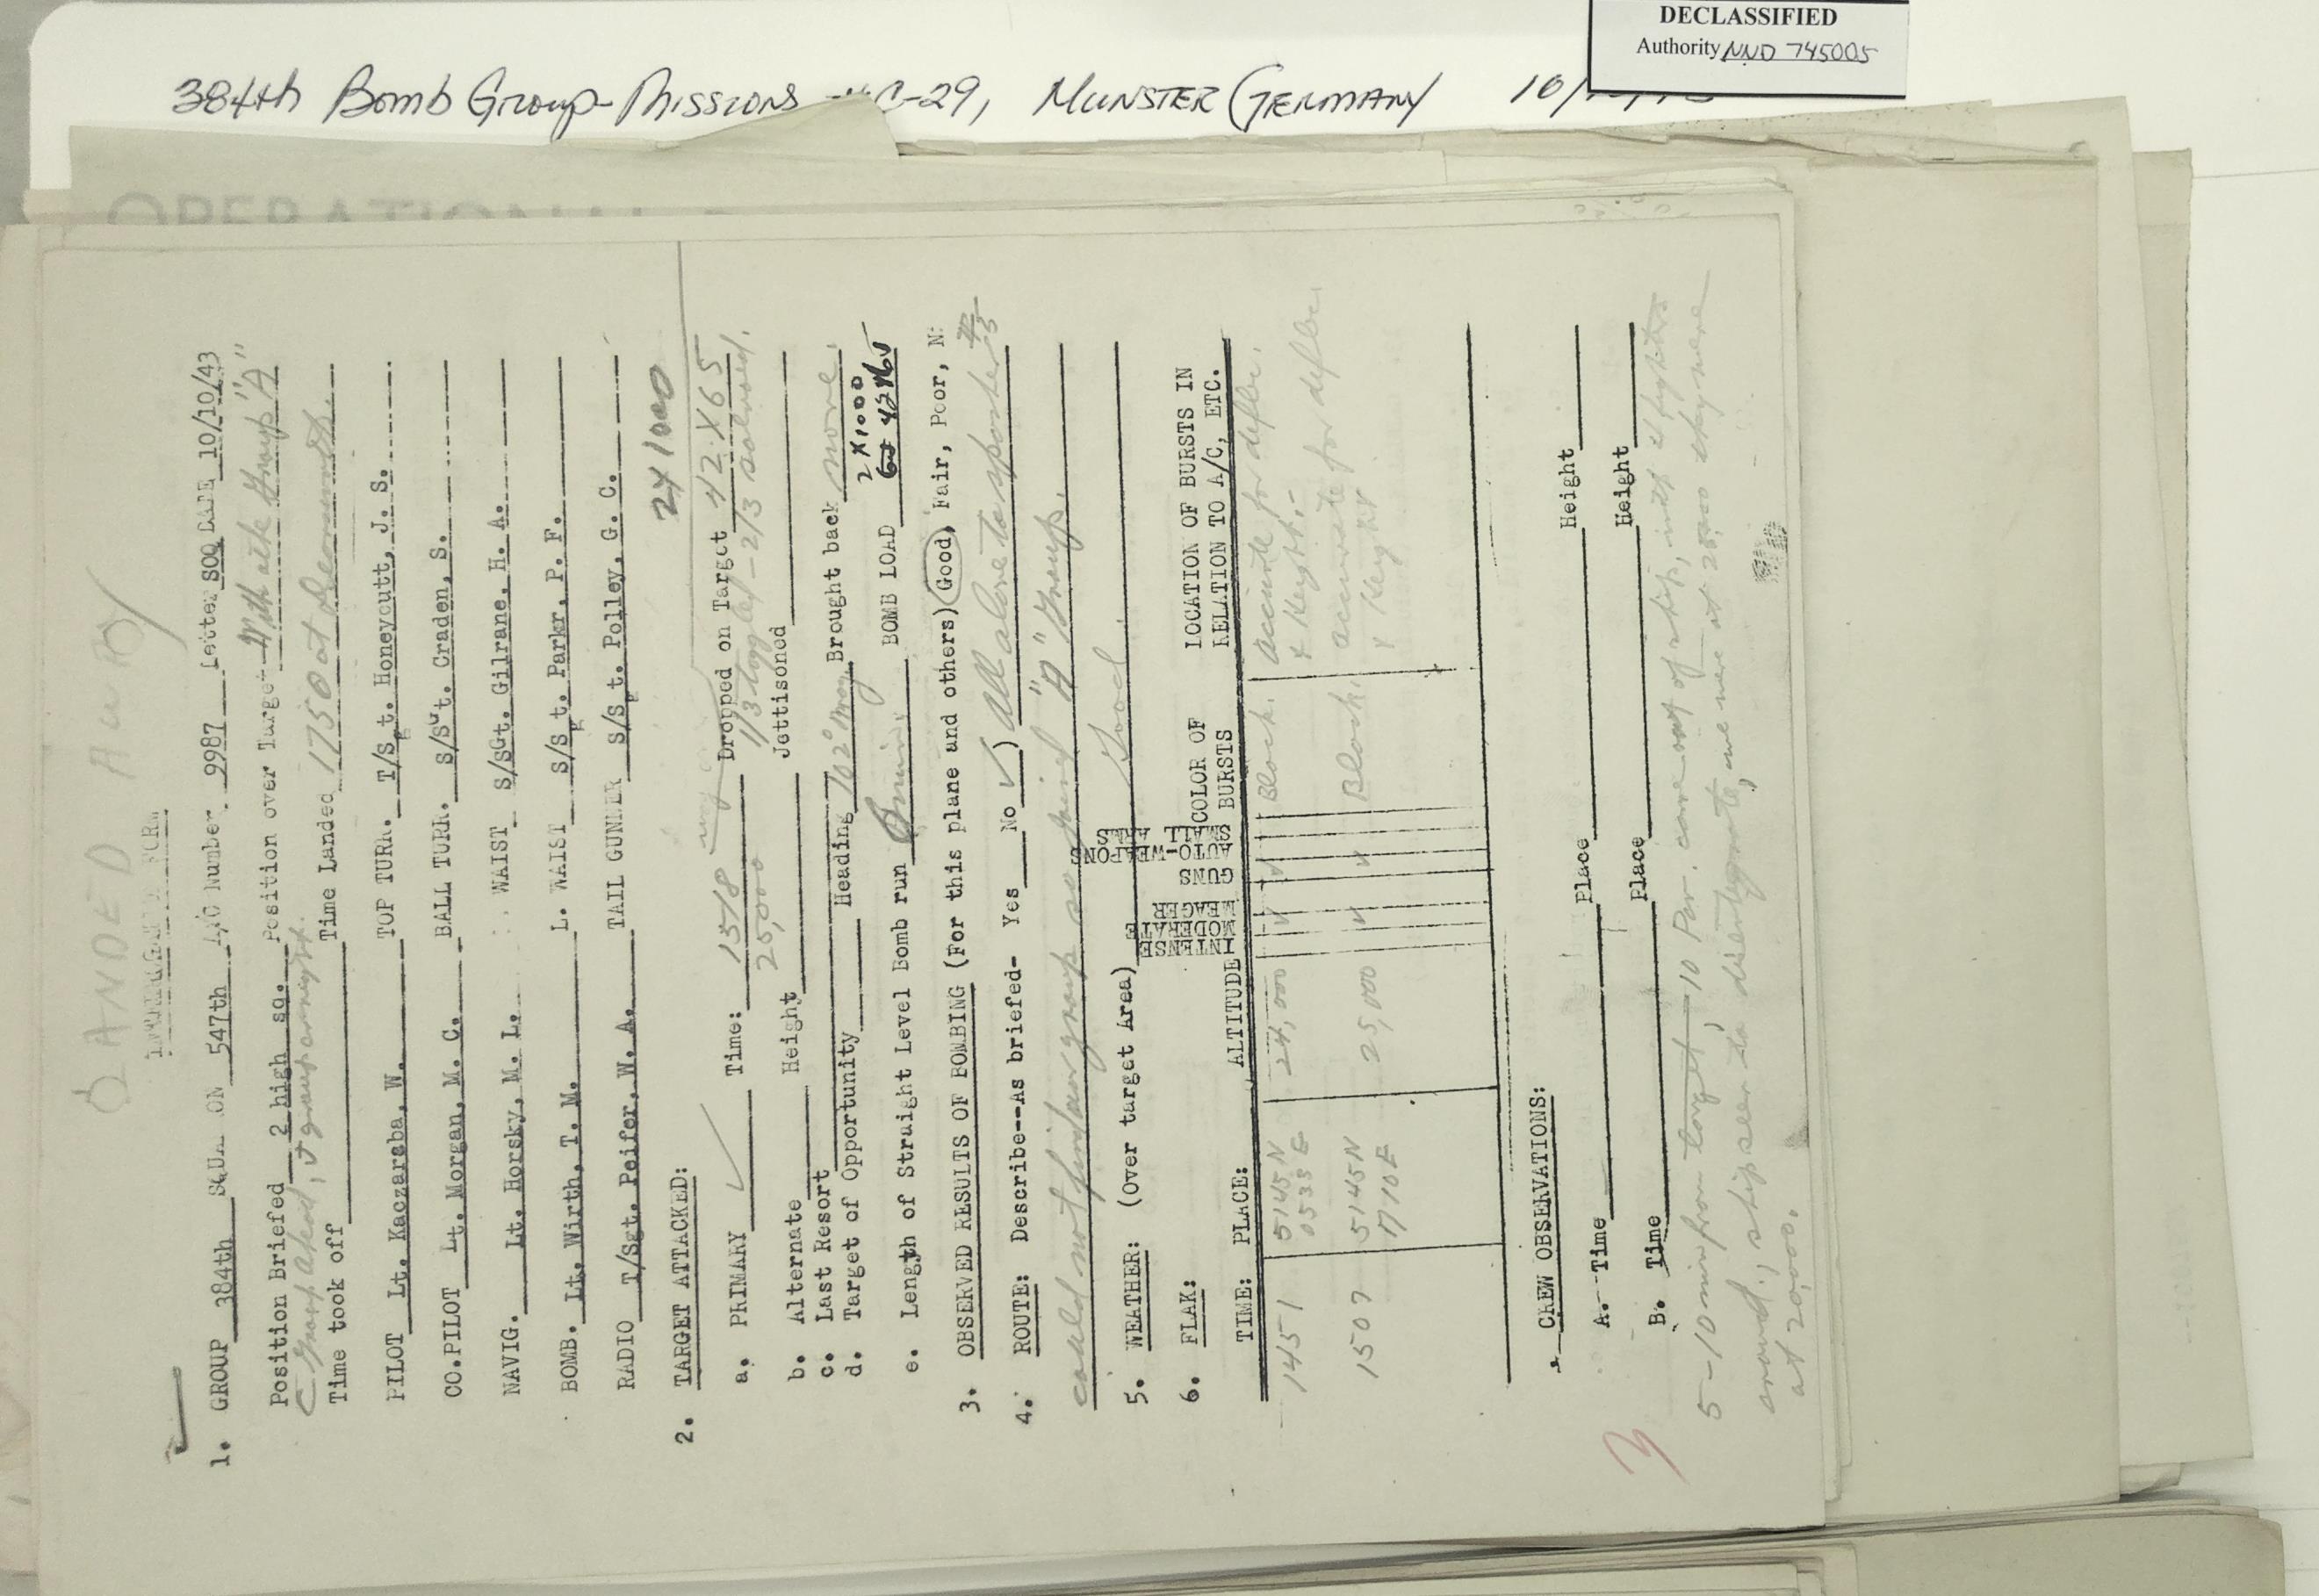 DECLASSIFIED
Authority NND 745005
384th Bomb Group - Missions -29, MUNSTER GERMANY 10/
LANDED AWAY
INTERROGATION FORM
1. GROUP 384th SQUADRON 547th A/C Number 9987 Letter SOQ DATE 10/10/43
Position Briefed 2 high sq. Position over Target With alk Group "A"
C Group ahead, & group on right.
Time took off Time Landed 1750 at
PILOT Lt. Kaczaraba, W. TOP TURR. T/Sgt. Honeycutt, J. S.
CO.PILOT Lt. Morgan, M. C. BALL TURR. S/Sgt. Craden, S.
NAVIG. Lt. Horsky, M. L. WAIST S/Sgt. Gilrane, H. A.
BOMB. Lt. Wirth, T. M. L. WAIST S/Sgt. Parkr, P. F.
RADIO T/Sgt. Peifer, W. A. TAIL GUNNER S/Sgt. Polley, G. C.
2X 1000
2. TARGET ATTACKED:
a. PRIMARY ✓ Time: 1518 Dropped on Target 42 X 65
1/3 toggled - 2/3 salvoed.
b. Alternate Height 25,000 Jettisoned
c. Last Resort
d. Target of Opportunity Heading 102° mag. Brought back none.
2 X 1000
e. Length of Straight Level Bomb run min. BOMB LOAD
3. OBSERVED RESULTS OF BOMBING (For this plane and others) Good, Fair, Poor, N:
4. ROUTE: Describe--As briefed- Yes No ✓) All alone to
could not find our group so joined "A" Group.
5. WEATHER: (Over target Area) Good.
6. FLAK:
TIME: PLACE: ALTITUDE INTENSE MODERATE MEAGER GUNS AUTO-WEAPONS SMALL ARMS COLOR OF BURSTS LOCATION OF BURSTS IN RELATION TO A/C, ETC.
1451 5145N 0533E 24,000 ✓ ✓ Black. accurate for deflec. & height.-
1507 5145N 0710E 25,000 ✓ ✓ Black. accurate for deflec. & height
CREW OBSERVATIONS:
A. Time Place Height
B. Time Place Height
5-10 min from target, 10 Par. came out of ship, with 4 fighters
around, ship seen to disintegrate, we were at 25,000 they were
at 20,000.
3